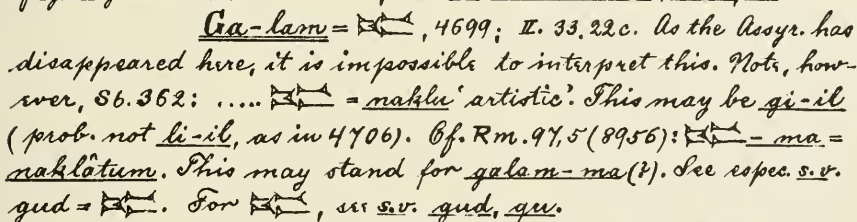 Ga-lam = , 4699; II. 33, 22c. As the Assyr. has
disappeared here, it is impossible to interpret this. Note, how-
ever, Sb. 362: ..... = naklu ‘artistic’. This may be gi-il
(prob. not li-il, as in 4706). Cf. Rm. 97, 5 (8956): - ma =
naklâtum. This may stand for galam-ma(?). See espec. s.v.
gud = . For , see s.v. gud, qu.